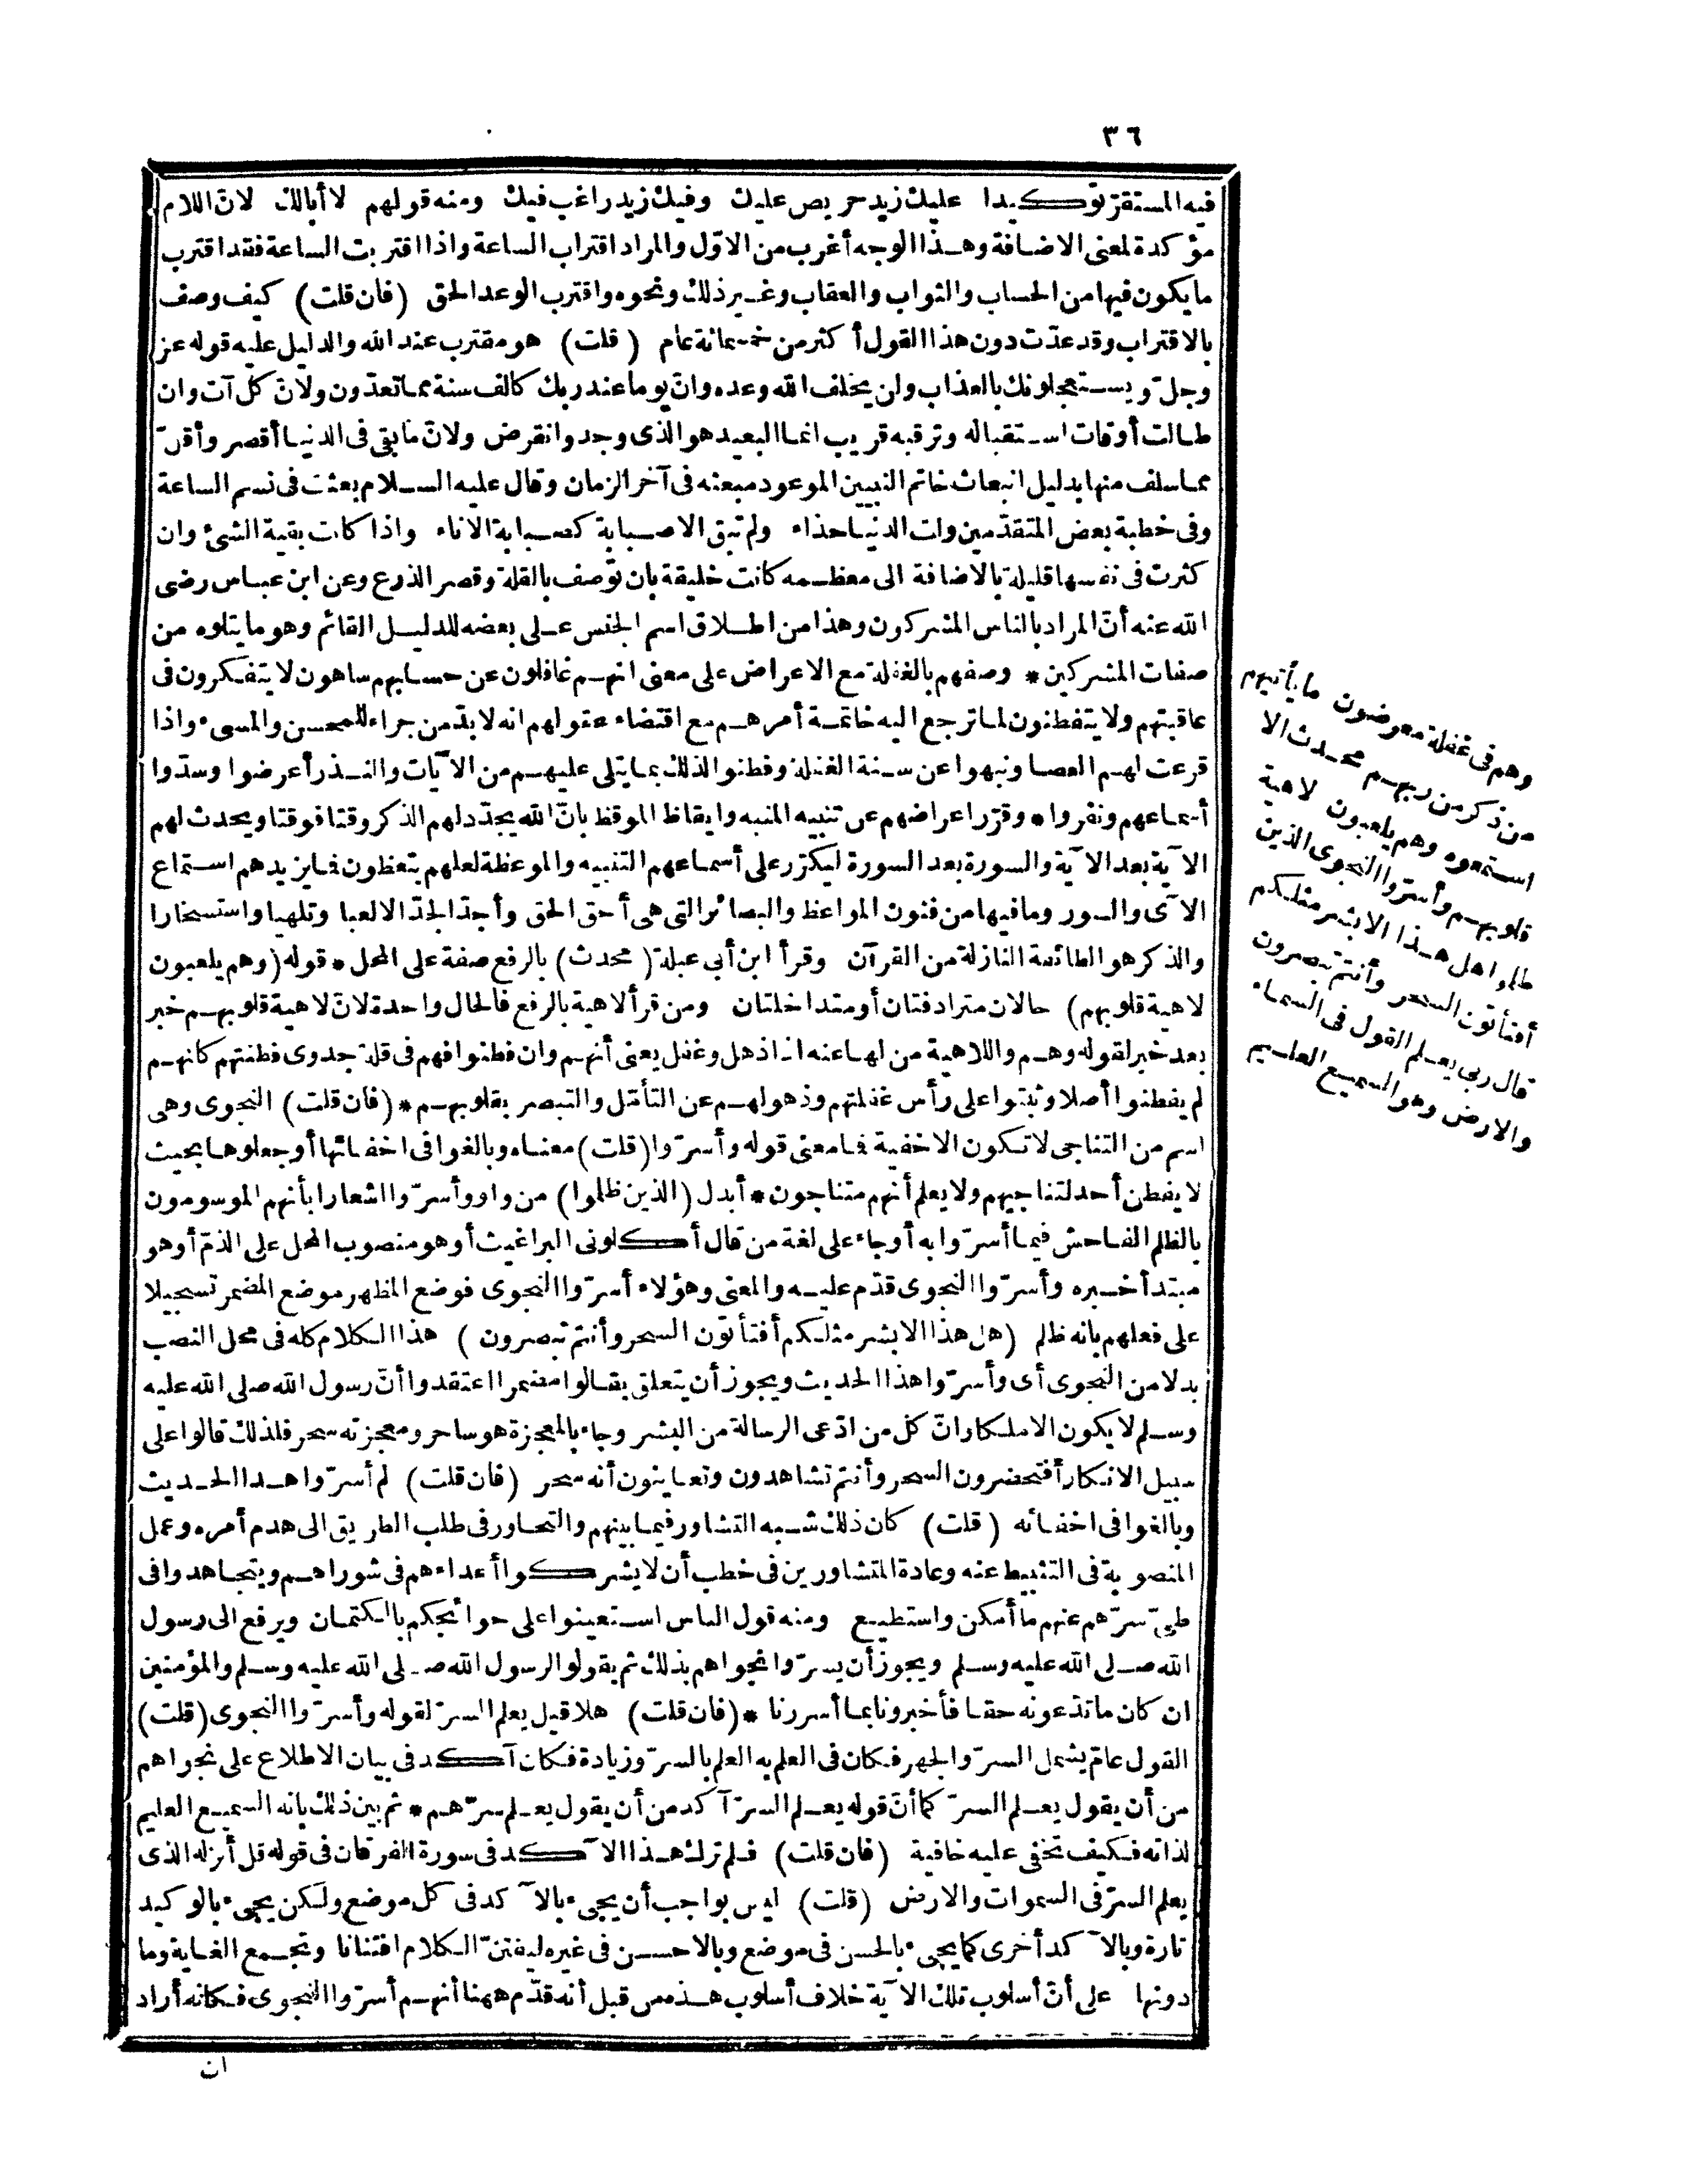 ٣٦
فيه المستقرّ توكيدا عليك زيد حريص عليك وفيك زيد راغب فيك ومنه قولهم لا أبالك لانّ اللام
مؤكدة لمعنى الاضافة وهذا الوجه أغرب من الاوّل والمراد اقتراب الساعة واذا اقتربت الساعة فقد اقترب
ما يكون فيها من الحساب والثواب والعقاب وغير ذلك ونحوه واقترب الوعد الحق (فان قلت) كيف وصف
بالاقتراب وقد عدّت دون هذا القول أكثر من خمسمائة عام (قلت) هو مقترب عند الله والدليل عليه قوله عز
وجلّ ويستعجلونك بالعذاب ولن يخلف الله وعده وانّ يوما عند ربك كالف سنة مما تعدّون ولانّ كل آت وان
طالت أوقات استقباله وترقبه قريب انما البعيد هو الذى وجد وانقرض ولانّ ما بقى فى الدنيا أقصر وأقلّ
مما سلف منها بدليل انبعاث خاتم النبيين الموعود مبعثه فى آخر الزمان وقال عليه السلام بعثت فى نسم الساعة
وفى خطبة بعض المتقدّمين ولت الدنيا حذاء ولم تبق الا صبابة كصبابة الاناء واذا كانت بقية الشئ وان
كثرت فى نفسها قليلة بالاضافة الى معظمه كانت خليقة بان توصف بالقلة وقصر الذرع وعن ابن عباس رضى
الله عنه أنّ المراد بالناس المشركون وهذا من اطلاق اسم الجنس على بعضه للدليل القائم وهو ما يتلوه من
صفات المشركين * وصفهم بالغفلة مع الاعراض على معنى انهم غافلون عن حسابهم ساهون لا يتفكرون فى
عاقبتهم ولا يتفطنون لما ترجع اليه خاتمة أمرهم مع اقتضاء عقولهم انه لابدّ من جزاء للمحسن والمسىء واذا
قرعت لهم العصا ونبهوا عن سنة الغفلة وفطنوا لذلك بما يتلى عليهم من الآيات والنذر أعرضوا وسدّوا
أسماعهم ونفروا * وقرّر اعراضهم عن تنبيه المنبه وايقاظ الموقظ بانّ الله يجدّد لهم الذكر وقتا فوقتا ويحدث لهم
الآية بعد الآية والسورة بعد السورة ليكرّر على أسماعهم التنبيه والموعظة لعلهم يتعظون فما يزيدهم استماع
الآى والسور وما فيها من فنون المواعظ والبصائر التى هى أحق الحق وأجدّ الجدّ الا لعبا وتلهيا واستسخارا
والذكر هو الطائفة النازلة من القرآن وقرأ ابن أبى عبلة (محدث) بالرفع صفة على المحل * قوله (وهم يلعبون
لاهية قلوبهم) حالان مترادفتان أو متداخلتان ومن قرأ لاهية بالرفع فالحال واحدة لانّ لاهية قلوبهم خبر
بعد خبر لقوله وهم واللاهية من لها عنه اذا ذهل وغفل يعنى أنهم وان فطنوا فهم فى قلة جدوى فطنتهم كانهم
لم يفطنوا أصلا وثبتوا على رأس غفلتهم وذهولهم عن التأمّل والتبصر بقلوبهم * (فان قلت) النجوى وهى
اسم من التناجى لا تكون الا خفية فما معنى قوله وأسرّوا (قلت) معناه وبالغوا فى اخفائها أو جعلوها بحيث
لا يفطن أحد لتناجيهم ولا يعلم أنهم متناجون * أبدل (الذين ظلموا) من واو وأسرّوا اشعارا بأنهم الموسومون
بالظلم الفاحش فيما أسرّوا به أو جاء على لغة من قال أكلونى البراغيث أو هو منصوب المحل على الذمّ أو هو
مبتدأ خبره وأسرّوا النجوى قدّم عليه والمعنى وهؤلاء أسرّوا النجوى فوضع المظهر موضع المضمر تسجيلا
على فعلهم بانه ظلم (هل هذا الا بشر مثلكم أفتأتون السحر وأنتم تبصرون) هذا الكلام كله فى محل النصب
بدلا من النجوى أى وأسرّوا هذا الحديث ويجوز أن يتعلق بقالوا مضمرا اعتقدوا أنّ رسول الله صلى الله عليه
وسلم لا يكون الا ملكا وانّ كل من ادّعى الرسالة من البشر وجاء بالمعجزة هو ساحر ومعجزته سحر فلذلك قالوا على
سبيل الانكار أفتحضرون السحر وأنتم تشاهدون وتعاينون أنه سحر (فان قلت) لم أسرّوا هذا الحديث
وبالغوا فى اخفائه (قلت) كان ذلك شبه التشاور فيما بينهم والتحاور فى طلب الطريق الى هدم أمره وعمل
المنصوبة فى التثبيط عنه وعادة المتشاورين فى خطب أن لا يشركوا أعداءهم فى شوراهم ويتجاهدوا فى
طىّ سرّهم عنهم ما أمكن واستطيع ومنه قول الناس استعينوا على حوائجكم بالكتمان ويرفع الى رسول
الله صلى الله عليه وسلم ويجوز أن يسرّوا نجواهم بذلك ثم يقولوا لرسول الله صلى الله عليه وسلم والمؤمنين
ان كان ما تدّعونه حقا فأخبرونا بما أسررنا * (فان قلت) هلا قيل يعلم السرّ لقوله وأسرّوا النجوى (قلت)
القول عامّ يشمل السرّ والجهر فكان فى العلم به العلم بالسرّ وزيادة فكان آكد فى بيان الاطلاع على نجواهم
من أن يقول يعلم السرّ كما أنّ قوله يعلم السرّ آكد من أن يقول يعلم سرّهم * ثم بين ذلك بانه السميع العليم
لذاته فكيف تخفى عليه خافية (فان قلت) فلم ترك هذا الآكد فى سورة الفرقان فى قوله قل أنزله الذى
يعلم السرّ فى السموات والارض (قلت) ليس بواجب أن يجىء بالآكد فى كل موضع ولكن يجىء بالوكيد
تارة وبالآكد أخرى كما يجىء بالحسن فى موضع وبالاحسن فى غيره ليفتنّ الكلام افتنانا وتجمع الغاية وما
دونها على أنّ أسلوب تلك الآية خلاف أسلوب هذه من قبل أنه قدّم ههنا أنهم أسرّوا النجوى فكانه أراد
ان
وهم فى غفلة معرضون ما يأتيهم
من ذكر من ربهم محدث الا
استمعوه وهم يلعبون لاهية
قلوبهم وأسرّوا النجوى الذين
ظلموا هل هذا الا بشر مثلكم
أفتأتون السحر وأنتم تبصرون
قال ربى يعلم القول فى السماء
والارض وهو السميع العليم